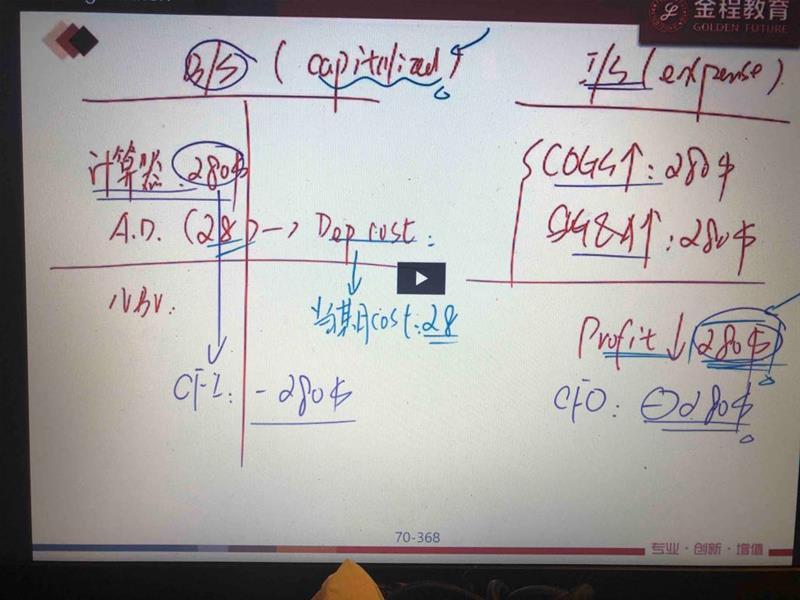 金程教育
GOLDEN FUTURE
B/S (capitalized)
I/S (expense)
计算器: 280$
A.D. (28) → Dep cost:
NBV.
当期cost: 28
CFI: -280$
COGS↑: 280$
SG&A↑: 280$
Profit↓ 280$
CFO: -280$
70-368
专业·创新·增值